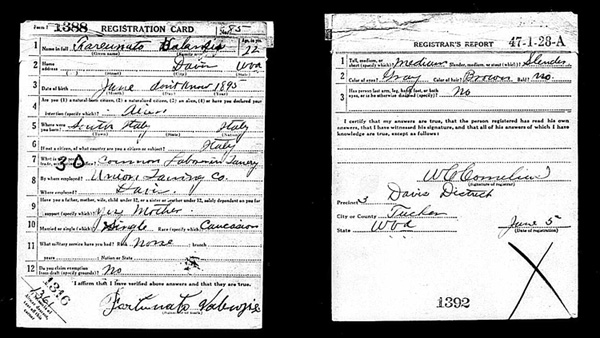 Form 1 1388 REGISTRATION CARD No. 95
1 Name in full Age, in yrs. 22
(Given name) (Family name)
2 Home address Davis Wva
(No.) (Street) (City) (State)
3 Date of birth June dont know 1895
(Month) (Day) (Year)
4 Are you (1) a natural-born citizen, (2) a naturalized citizen, (3) an alien, (4) or have you declared your
intention (specify which)? Alien
5 Where were you born? Italy Italy
(Town) (State) (Nation)
6 If not a citizen, of what country are you a citizen or subject? Italy
7 What is your 30 Common Laborer Tannery
8 By whom employed? Union Tanning Co.
Where employed? Davis
9 Have you a father, mother, wife, child under 12, or a sister or brother under 12, solely dependent on you for
support (specify which)? Yes Mother
10 Married or single (which)? Single Race (specify which)? Caucasian
11 What military service have you had? Rank None branch
years Nation or State
12 Do you claim exemption from draft (specify grounds)? No
I affirm that I have verified above answers and that they are true.
1346
136
Fortunato
REGISTRAR'S REPORT 47-1-23-A
1 Tall, medium, or short (specify which)? Medium Slender, medium, or stout (which)? Slender
2 Color of eyes? Gray Color of hair? Brown Bald? No
3 Has person lost arm, leg, hand, foot, or both eyes, or is he otherwise disabled (specify)? No
I certify that my answers are true, that the person registered has read his own
answers, that I have witnessed his signature, and that all of his answers of which I have
knowledge are true, except as follows:
(Signature of registrar)
Precinct 3 Davis District
City or County Tucker
State WVa June 5
(Date of registration)
1392